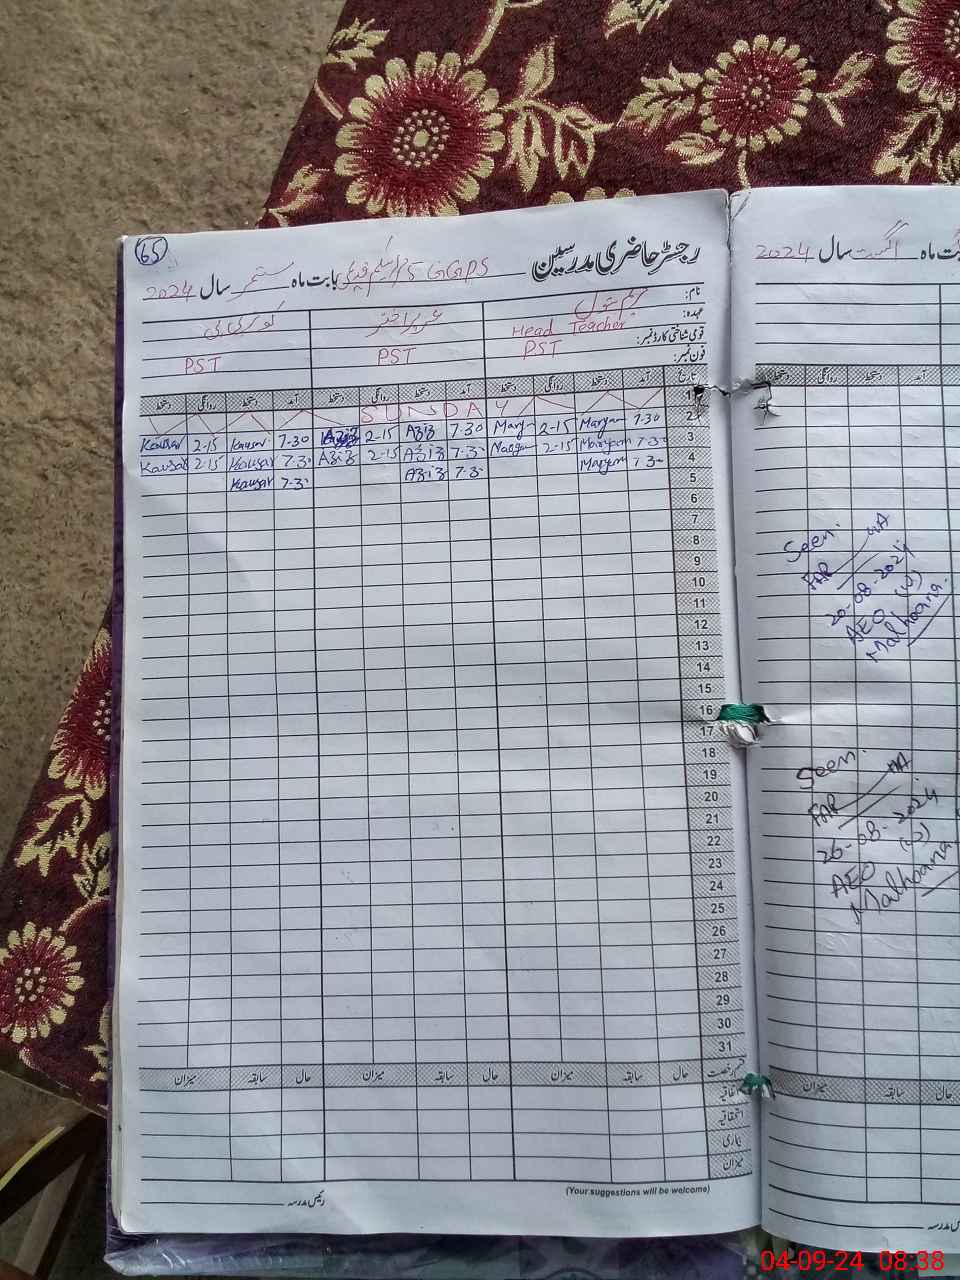 65
رجسٹر حاضری مدرسین
GGPS
بابت ماہ ستمبر سال 2024
نام:
عہدہ: Head Teacher
قومی شناختی کارڈ نمبر: PST PST PST
فون نمبر:
تاریخ آمد دستخط روانگی دستخط آمد دستخط روانگی دستخط آمد دستخط روانگی دستخط
1 SUNDAY
2 7-30 Maryam 2-15 Maryam 7-30 Aziz 2-15 Aziz 7-30 Kausar 2-15 Kausar
3 7-30 Maryam 2-15 Maryam 7-30 Aziz 2-15 Aziz 7-30 Kausar 2-15 Kausar
4 7-30 Maryam 7-30 Aziz 7-30 Kausar
5
6
7
8
9
10
11
12
13
14
15
16
17
18
19
20
21
22
23
24
25
26
27
28
29
30
31
قسم رخصت حال سابقہ میزان حال سابقہ میزان حال سابقہ میزان
اتفاقیہ
استحقاقیہ
بیماری
میزان
(Your suggestions will be welcome)
رئیس مدرسہ
بابت ماہ اگست سال 2024
دستخط روانگی دستخط آمد
Seen.
20-08-2024
AEO (W)
Malhoana.
Seen.
26-08-2024
AEO (W)
Malhoana.
حال سابقہ میزان
رئیس مدرسہ
04-09-24 08:38